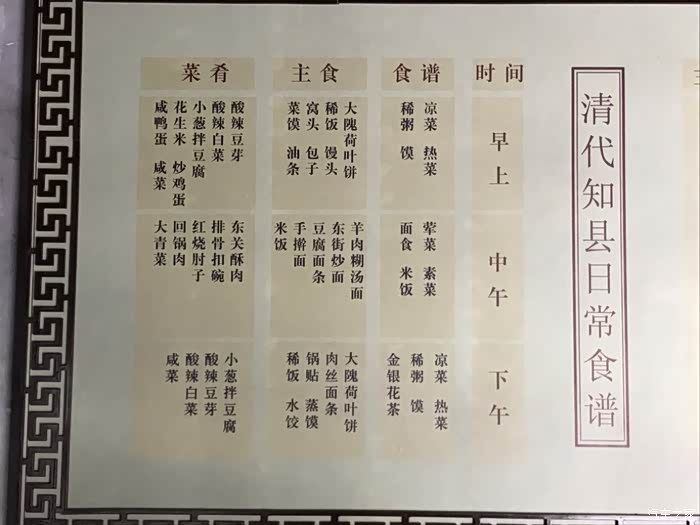 清代知县日常食谱
时间
食谱
主食
菜肴
早上
凉菜 热菜
稀粥 馍
大隗荷叶饼
稀饭 馒头
窝头 包子
菜馍 油条
酸辣豆芽
酸辣白菜
小葱拌豆腐
花生米 炒鸡蛋
咸鸭蛋 咸菜
中午
荤菜 素菜
面食 米饭
羊肉糊汤面
东街炒面
豆腐面条
手擀面
米饭
东关酥肉
排骨扣碗
红烧肘子
回锅肉
大青菜
下午
凉菜 热菜
稀粥 馍
金银花茶
大隗荷叶饼
肉丝面条
锅贴 蒸馍
稀饭 水饺
小葱拌豆腐
酸辣豆芽
酸辣白菜
咸菜
汽车之家